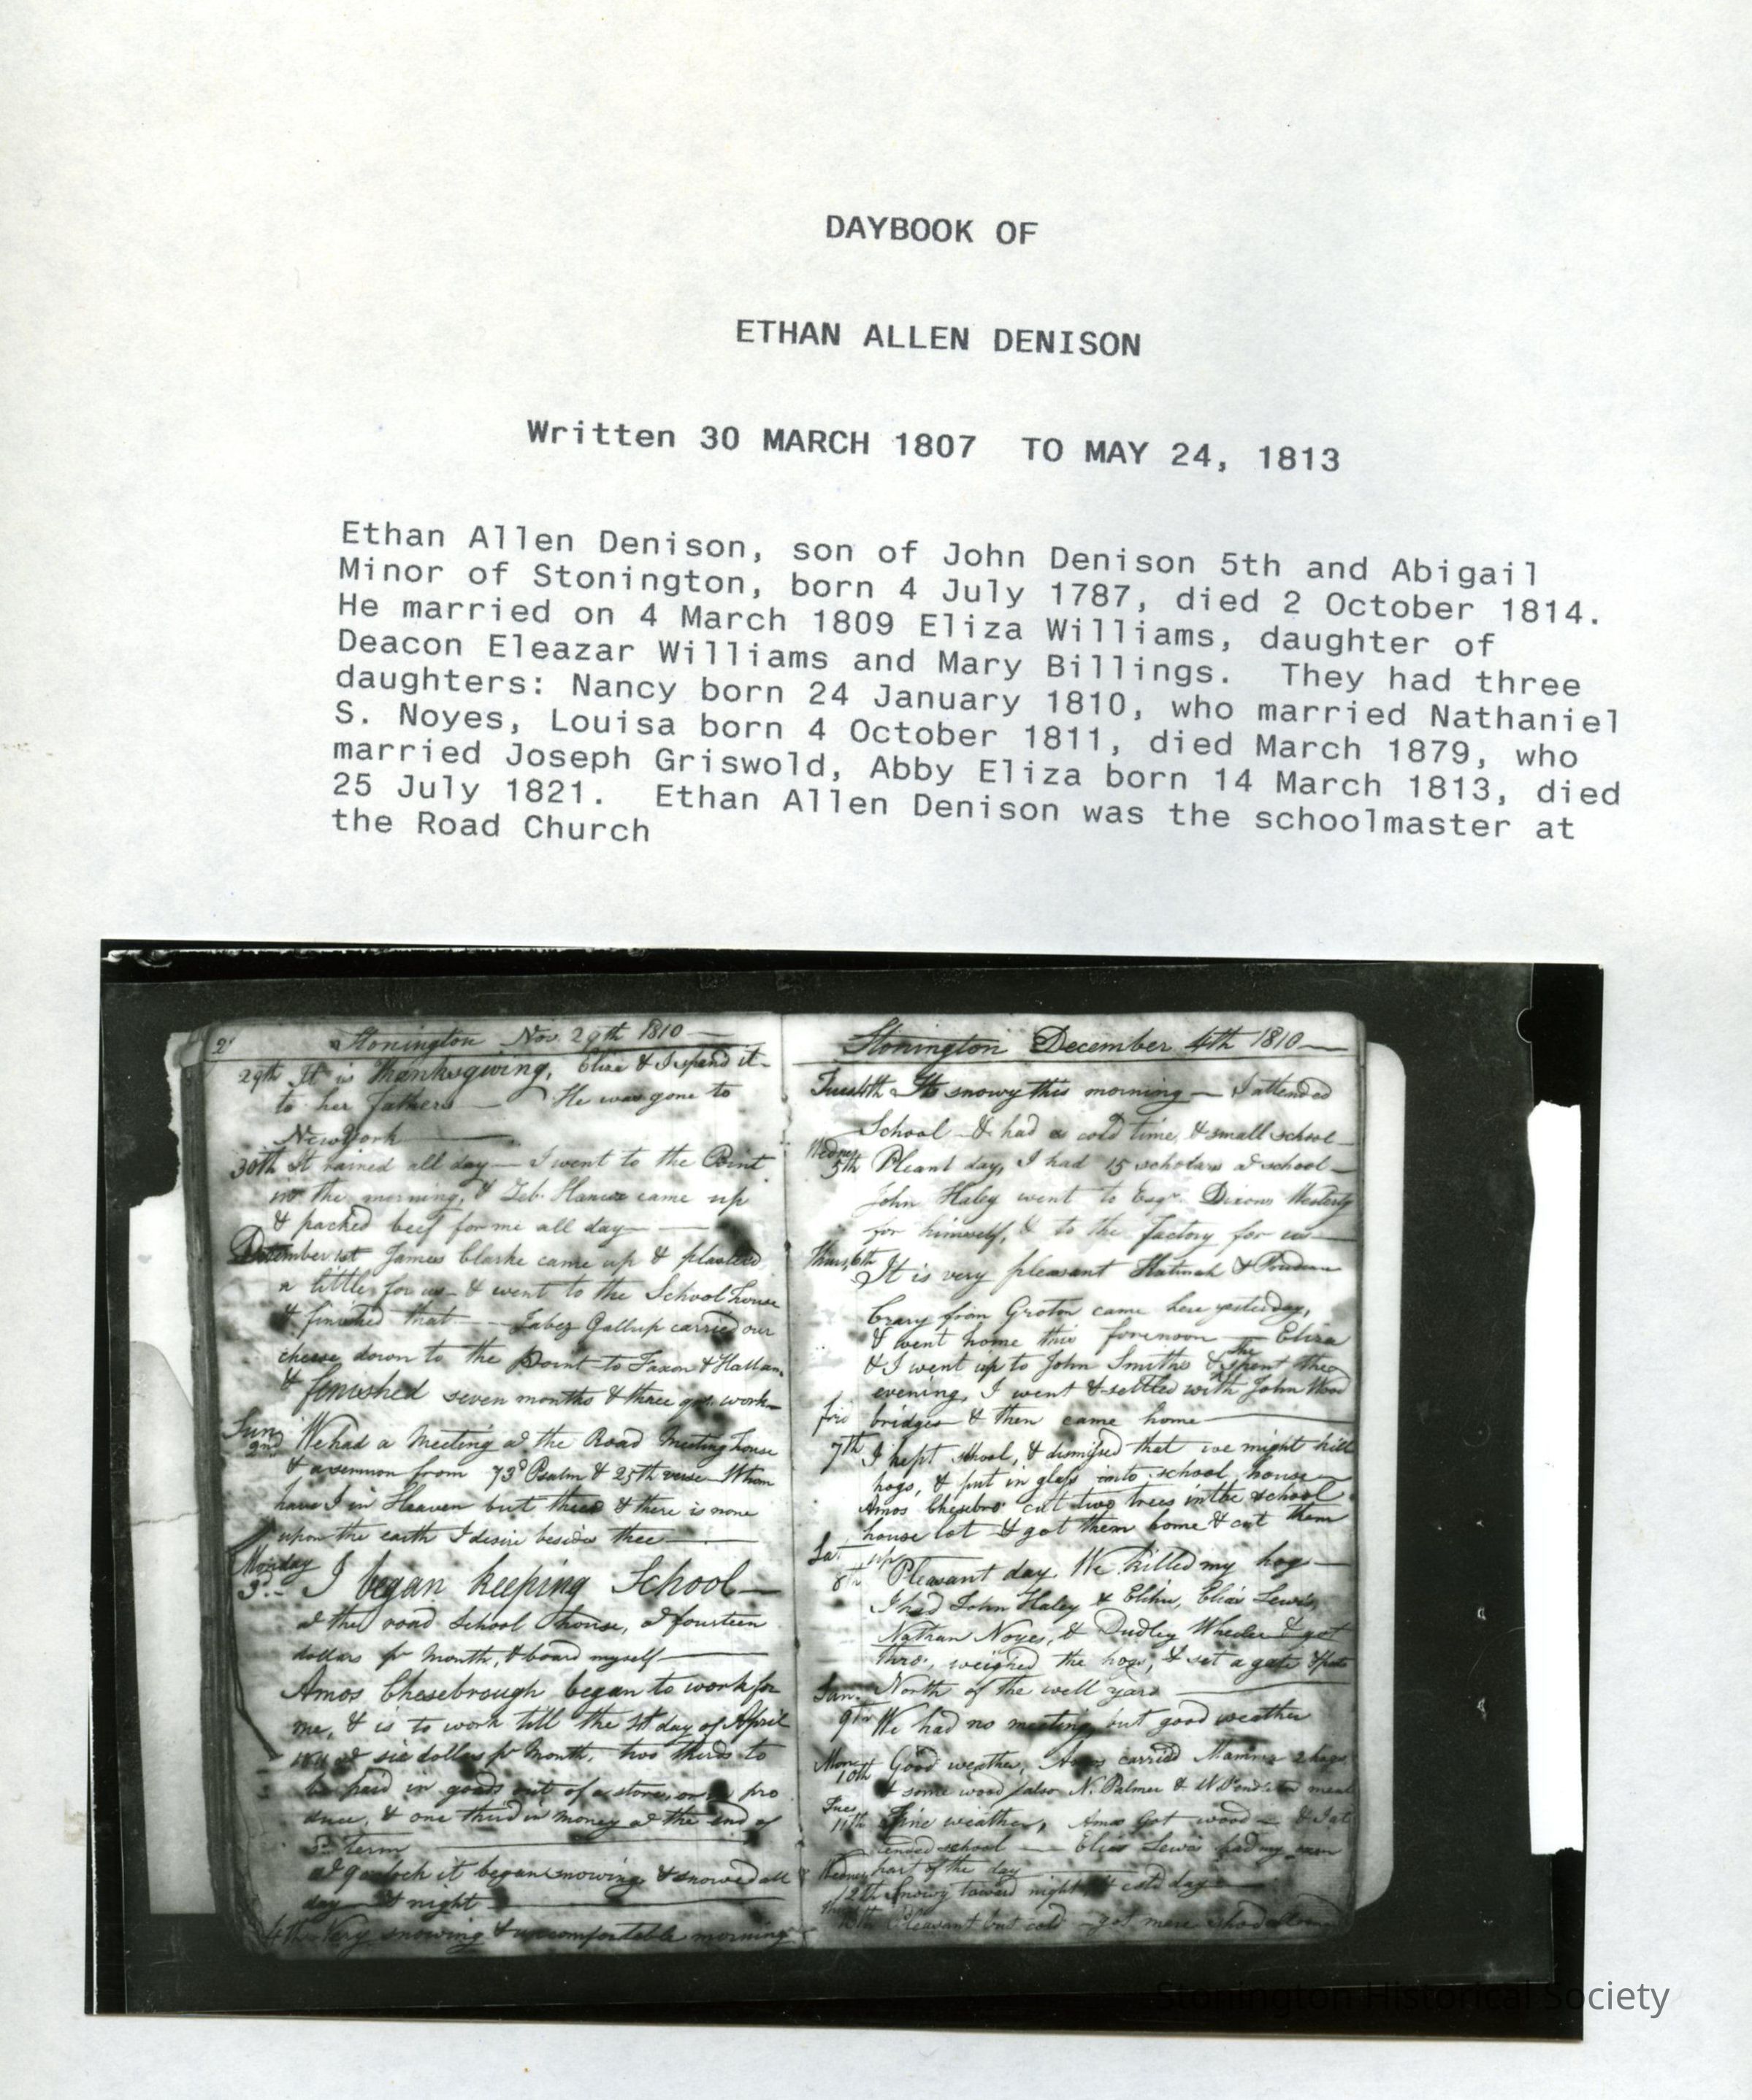 DAYBOOK OF
ETHAN ALLEN DENISON
Written 30 MARCH 1807 TO MAY 24, 1813
Ethan Allen Denison, son of John Denison 5th and Abigail
Minor of Stonington, born 4 July 1787, died 2 October 1814.
He married on 4 March 1809 Eliza Williams, daughter of
Deacon Eleazar Williams and Mary Billings. They had three
daughters: Nancy born 24 January 1810, who married Nathaniel
S. Noyes, Louisa born 4 October 1811, died March 1879, who
married Joseph Griswold, Abby Eliza born 14 March 1813, died
25 July 1821. Ethan Allen Denison was the schoolmaster at
the Road Church
Stonington Nov. 29th 1810
29th It is Thanksgiving, Eliza & I spend it
to her fathers — He was gone to
New York
30th It rained all day — I went to the Point
in the morning, & Zeb. came up
& packed beef for me all day
December 1st James Clarke came up & plastered
a little for us — & went to the School house
& finished that — Jabez Gallup carried our
cheese down to the Point to Faxon &
& finished seven months & three work
Sun 2nd We had a Meeting at the Road Meeting house
& a sermon from 73d Psalm & 25th verse Whom
have I in Heaven but thee & there is none
upon the earth I desire beside thee
Monday 3d I began keeping School —
at the road School house, at fourteen
dollars pr Month, & board myself
Amos Chesebrough began to work for
me, & is to work till the 1st day of April
1811 at six dollars pr Month, two thirds to
be paid in goods out of a store, or in pro
duce, & one third in money at the end of
sd. term
at 9 oclock it began snowing & snowed all
day — at night
4th Very snowing & uncomfortable morning
Stonington December 4th 1810
Tues 4th Its snowy this morning — I attended
School — & had a cold time, & small school
Wednes 5th Pleasant day, I had 15 scholars at school
John Haley went to Esqr. Dixons Westerly
for himself, & to the factory for us
Thurs. 6th It is very pleasant &
Crary from Groton came here yesterday,
& went home this forenoon — Eliza
& I went up to John Smiths & she spent the
evening, I went & settled with John Wood
bridges & then came home
fri 7th I kept school, & dismissed that we might kill
hogs, & put in glass into school house
Amos Chesebro' cut two trees in the school
house lot & got them home & cut them
up
Sat 8th Pleasant day. We killed my hogs —
I had John Haley & Elihu, Elias Lewis,
Nathan Noyes, & Dudley Wheeler & got
thro', weighed the hogs, & set a gate
North of the well yard
Sun. 9th We had no meeting, but good weather
Mon 10th Good weather, Amos carried Mamma 2 hogs
& some wood N. Palmer & meal
Tues 11th Fine weather, Amos got wood — & I at
tended school — Elias Lewis had my oxen
part of the day
Wednes 12th Snowy toward night, cold day
Thurs 13th Pleasant but cold — got
Stonington Historical Society